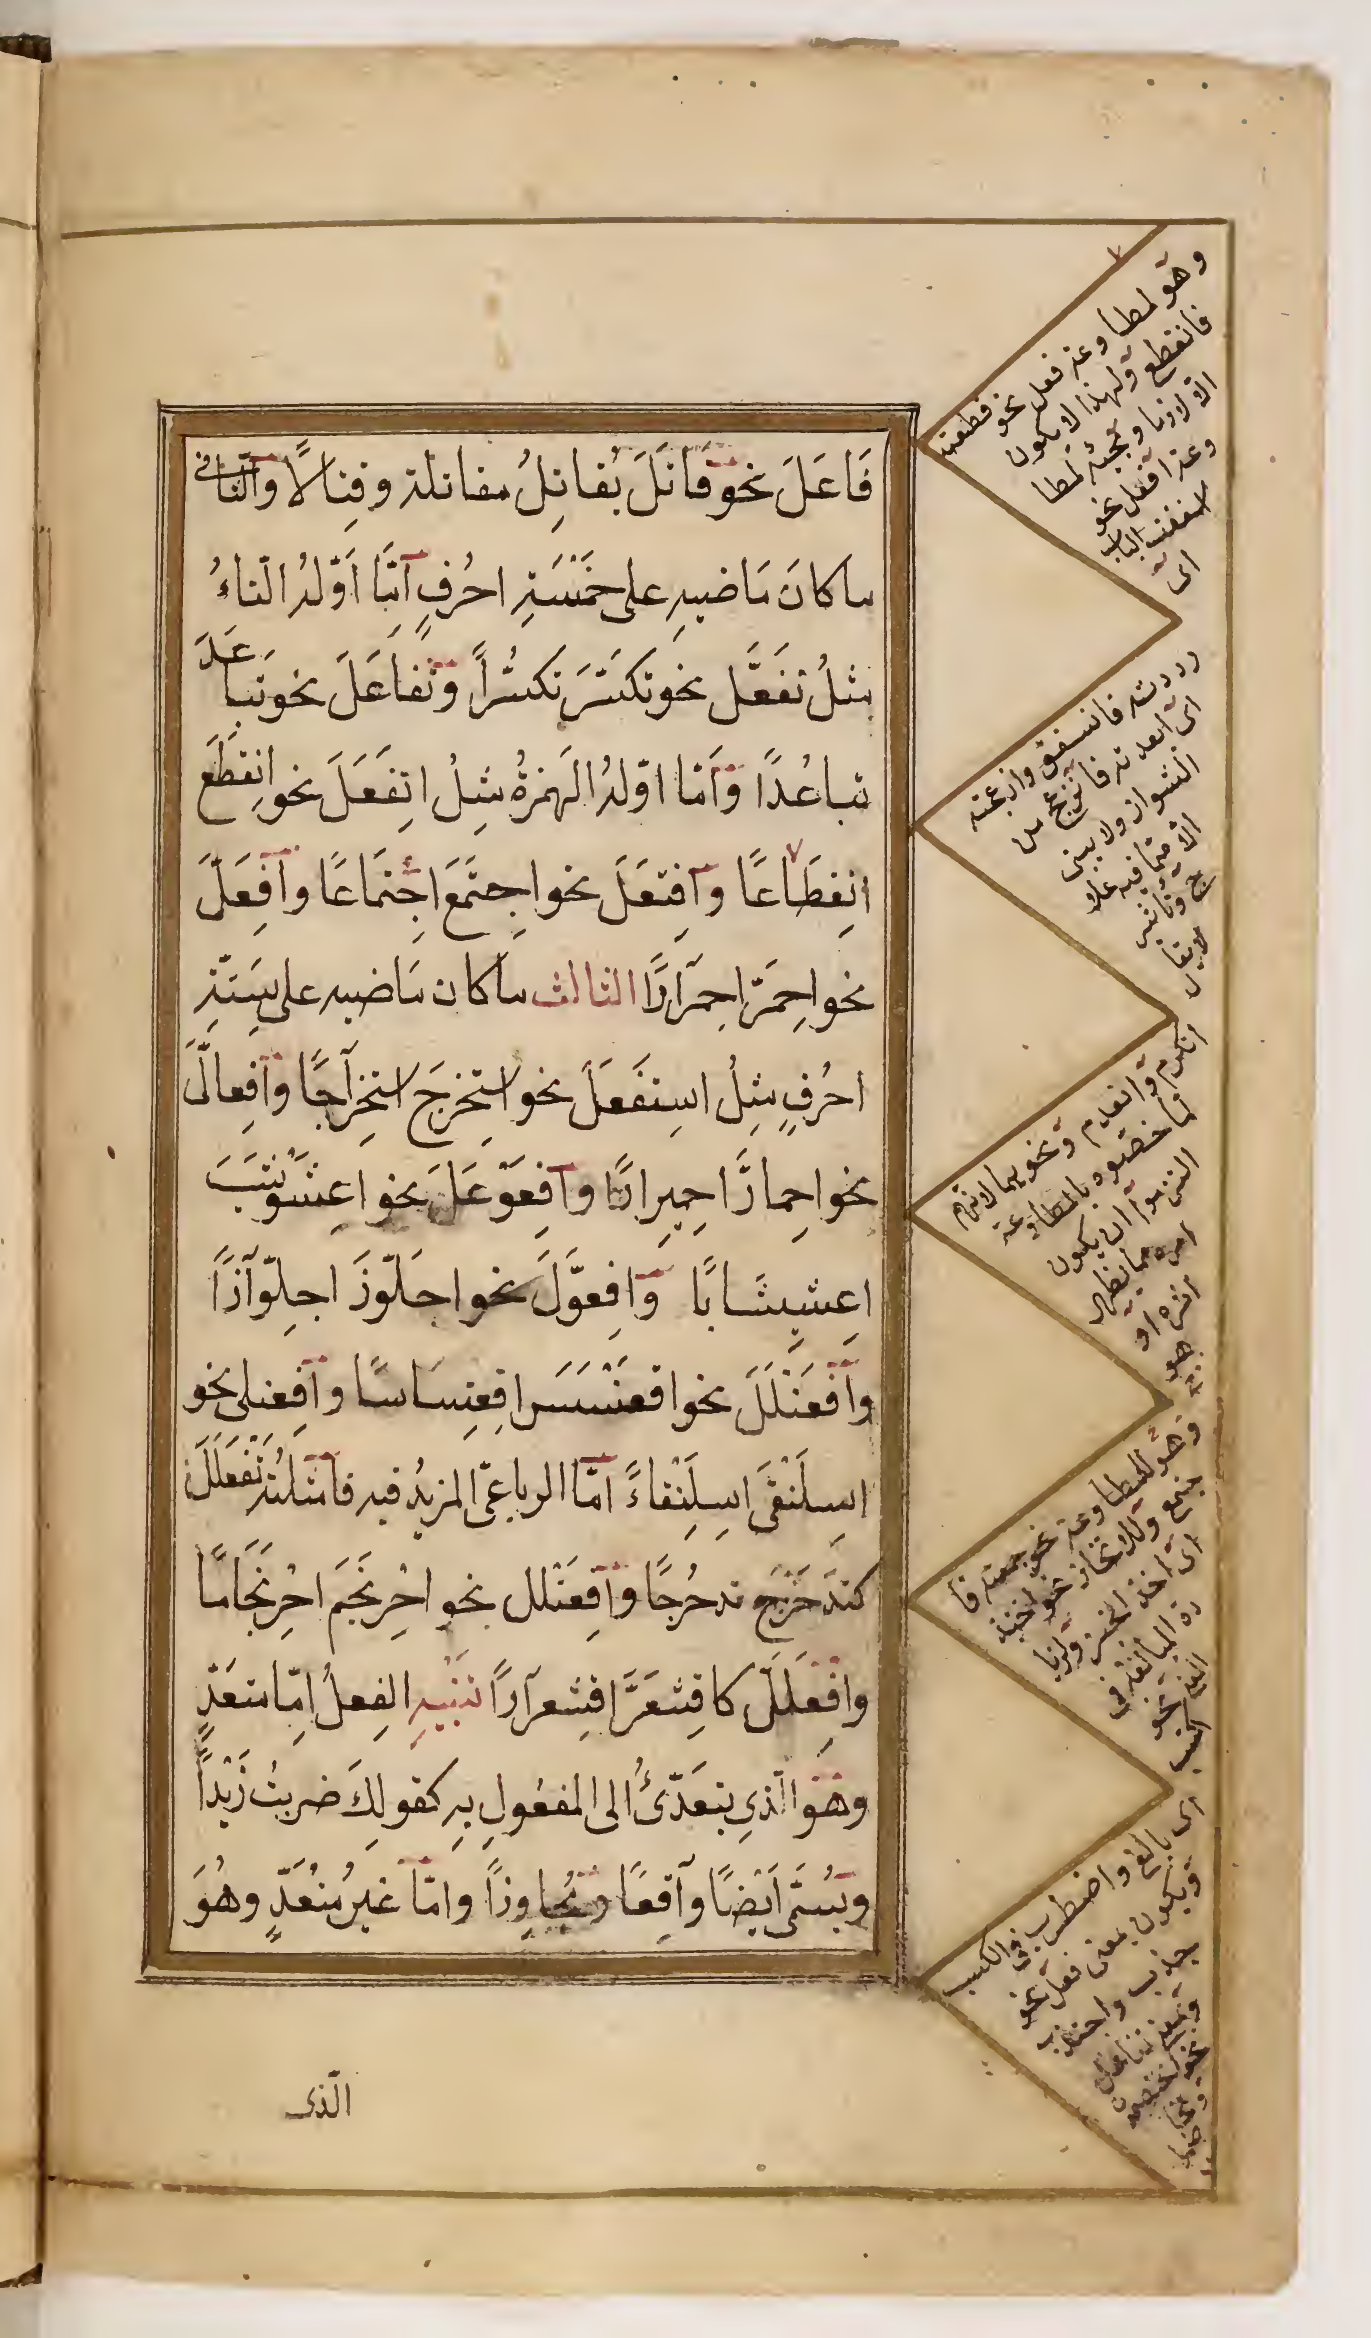 فَاعَلَ نحو قَاتَلَ يُقاتِلُ مقاتلة وقِتالًا والثاني
ما كانَ مَاضيهِ على خَمْسَةِ احُرفٍ اَمَّا اَوّلهُ التاءُ
مثلُ تَفَعَّلَ نحو تكَسَّرَ تكسُّراً وتَفاعَلَ نحو تَباعَدَ
تباعُدًا واَمّا اوّلهُ الهَمزةُ مثِلُ انِفَعَلَ نحو انِقَطَعَ
انِقِطَاعًا وافِتعَلَ نحو اجِتَمَعَ اجِتمَاعًا وافعَلَّ
نحو احِمَرَّ احِمرَارًا الثالث ما كان مَاضيه على سِتّةِ
احُرفٍ مثِلُ استِفَعَلَ نحو استِخرَجَ استِخِراجًا وافِعالَّ
نحو احِمارَّ احِميِرارًا وافِعَوْعَلَ نحو اعِشَوْشَبَ
اعِشيِشَابًا وافِعوَّلَ نحو اجلَوّذَ اجلِوّاذًا
وافْعَنْلَلَ نحو اقعَنْسَسَ اقعِنِسَاسًا وافِعنلى نحو
اسِلَنْقَى اسِلِنْقاءً امّا الرباعىّ المزيدُ فيه فامثلتُه تَفَعْلَلَ
كتَدَحْرَجَ تدحرُجًا وافِعَنْلل نحو احْرِنجَمَ احْرِنجَامًا
وافِعَلَلَّ كاقِشعَرَّ اقشِعرارًا تنبيهِ الفِعلُ امِّا متعَدٍّ
وهُوَ الّذِى يتعَدّىُ الى المفعُولِ بِهِ كقولِكَ ضربتُ زَيْداً
ويُسَمَّى اَيْضًا واقِعًا ومُجاوِزاً وامّا غَيرُ مُتعَدٍّ وهُوَ
الّذى
وهو لمطاوعة فعل نحو قطعته
فانقطع ولهذا لا يكون
الا لازما ومجيئه لمطا
وعة افعل نحو
اسفقت الباب
اى
رددته فانسفق وازعجته
اى ابعدته فانزعج من
الشواذ ولا يبنى
الا مما فيه علا
ج وتاثير
لا يقال
انكرم وانعدم ونحوهما لانهم
لما خصوه بالمطاوعة
التزموا ان يكون
امره مما يظهر
اثره او
هو
وهو للمطاوعة نحو جمعته فا
جتمع وللاتخاذ نحو اختبز
اى اخذ الخبز ولزيا
دة المبالغة فى
المعنى نحو
اكتسب
اى بالغ واضطرب فى الكسب
ويكون بمعنى فعل نحو
جذب واجتذب
وبمعنى تفاعل
نحو اختصم